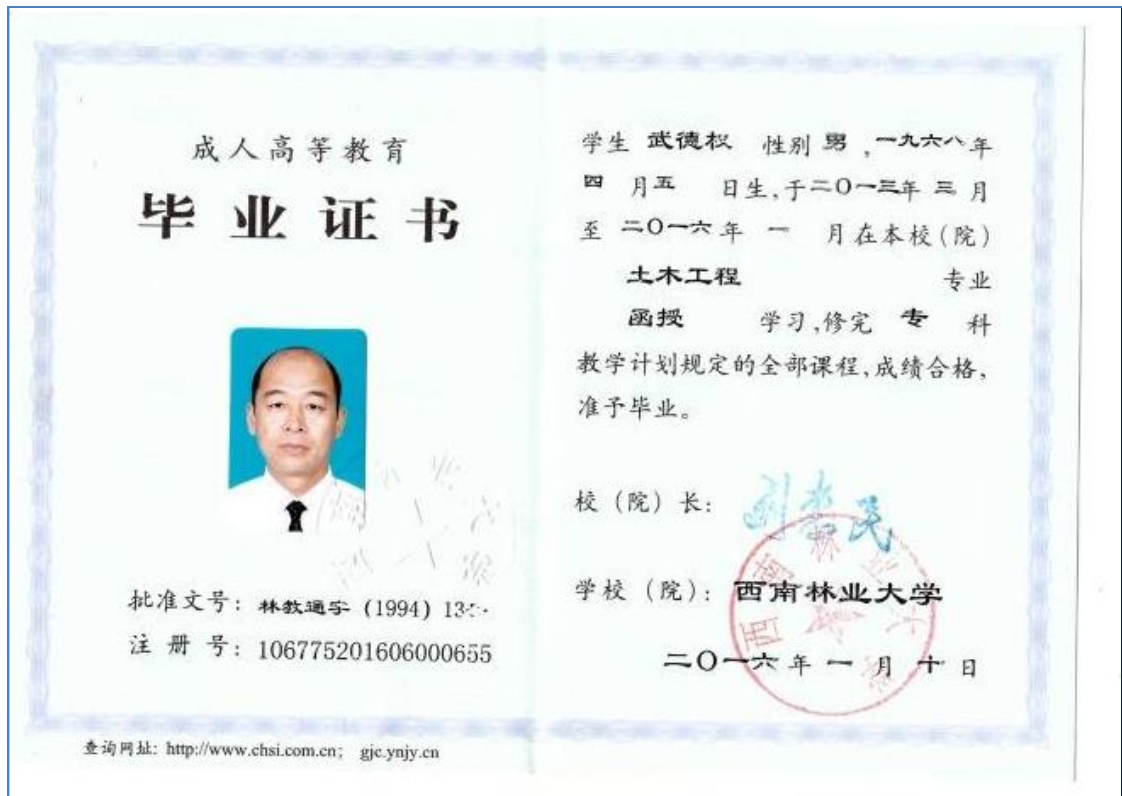 成人高等教育
毕业证书
批准文号：林教通字 (1994) 13
注 册 号：106775201606000655
查询网址: http://www.chsi.com.cn; gjc.ynjy.cn
学生 武德权 性别 男 ,一九六八年
四 月五 日生,于二O一三年 三 月
至 二O一六年 一 月在本校(院)
土木工程 专业
函授 学习,修完 专 科
教学计划规定的全部课程,成绩合格,
准予毕业。
校（院）长:
学校（院）: 西南林业大学
二O一六年 一 月 十 日
西南林业大学